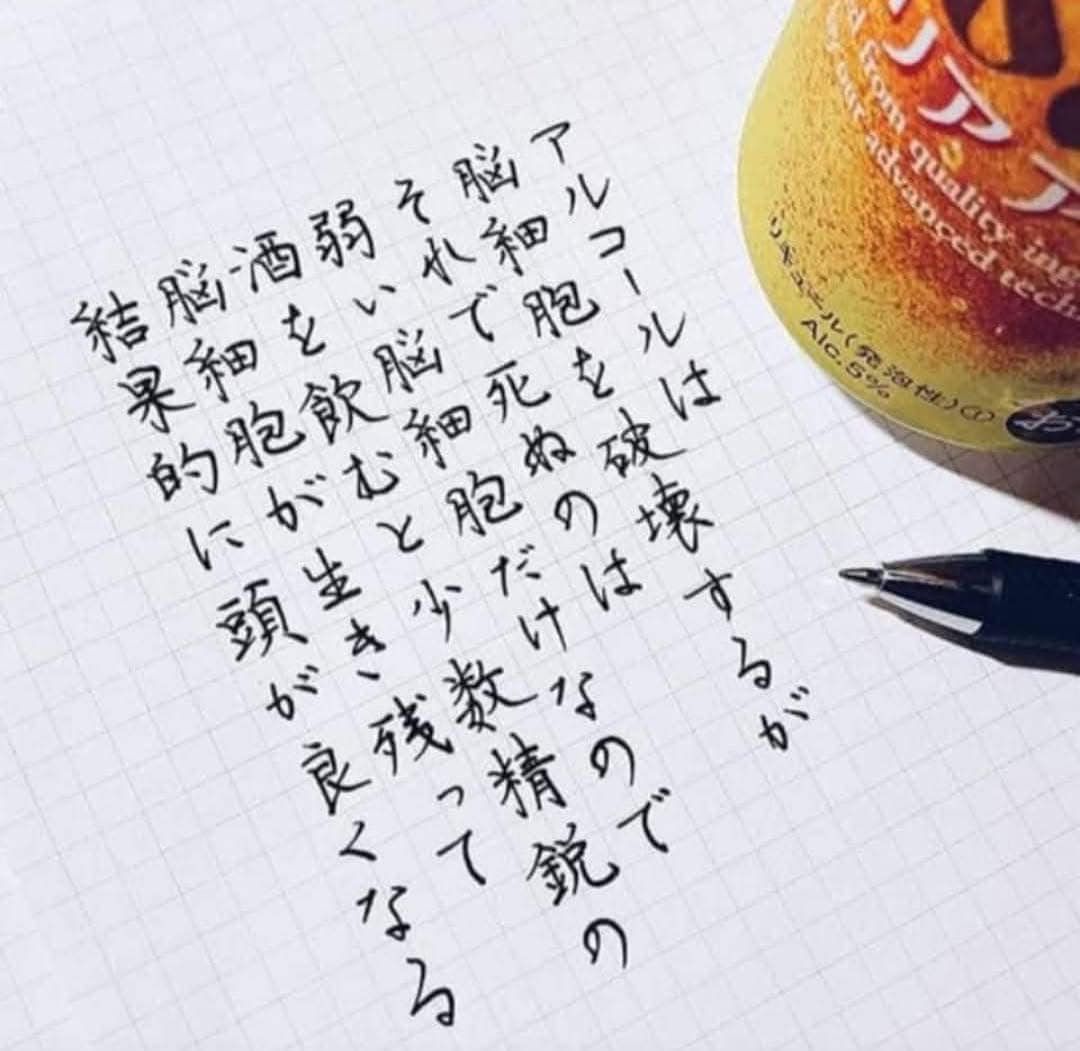 アルコールは
脳細胞を破壊するが
それで死ぬのは
弱い脳細胞だけなので
酒を飲むと少数精鋭の
脳細胞が生き残って
結果的に頭が良くなる
from quality
advanced
リキュール(発泡性)①
Alc.5%